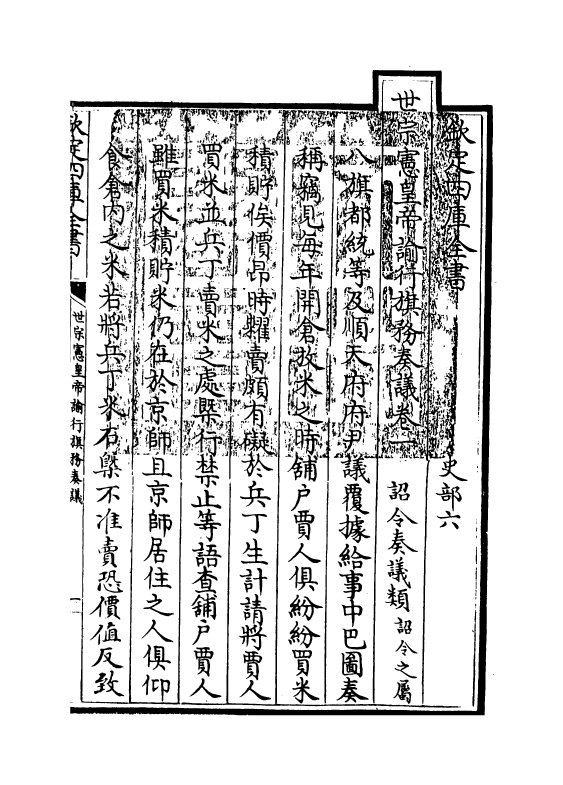 欽定四庫全書　史部六
世宗憲皇帝諭行旗務奏議卷一　詔令奏議類　詔令之屬
八旗都統等及順天府府尹議覆據給事中巴圖奏
稱竊見每年開倉放米之時舖户賈人俱紛紛買米
積貯俟價昂時糶賣頗有礙於兵丁生計請將賈人
買米並兵丁賣米之處槩行禁止等語查舖户賈人
雖買米積貯米仍在於京師且京師居住之人俱仰
食倉内之米若將兵丁米石槩不准賣恐價值反致
欽定四庫全書
世宗憲皇帝諭行旗務奏議
一